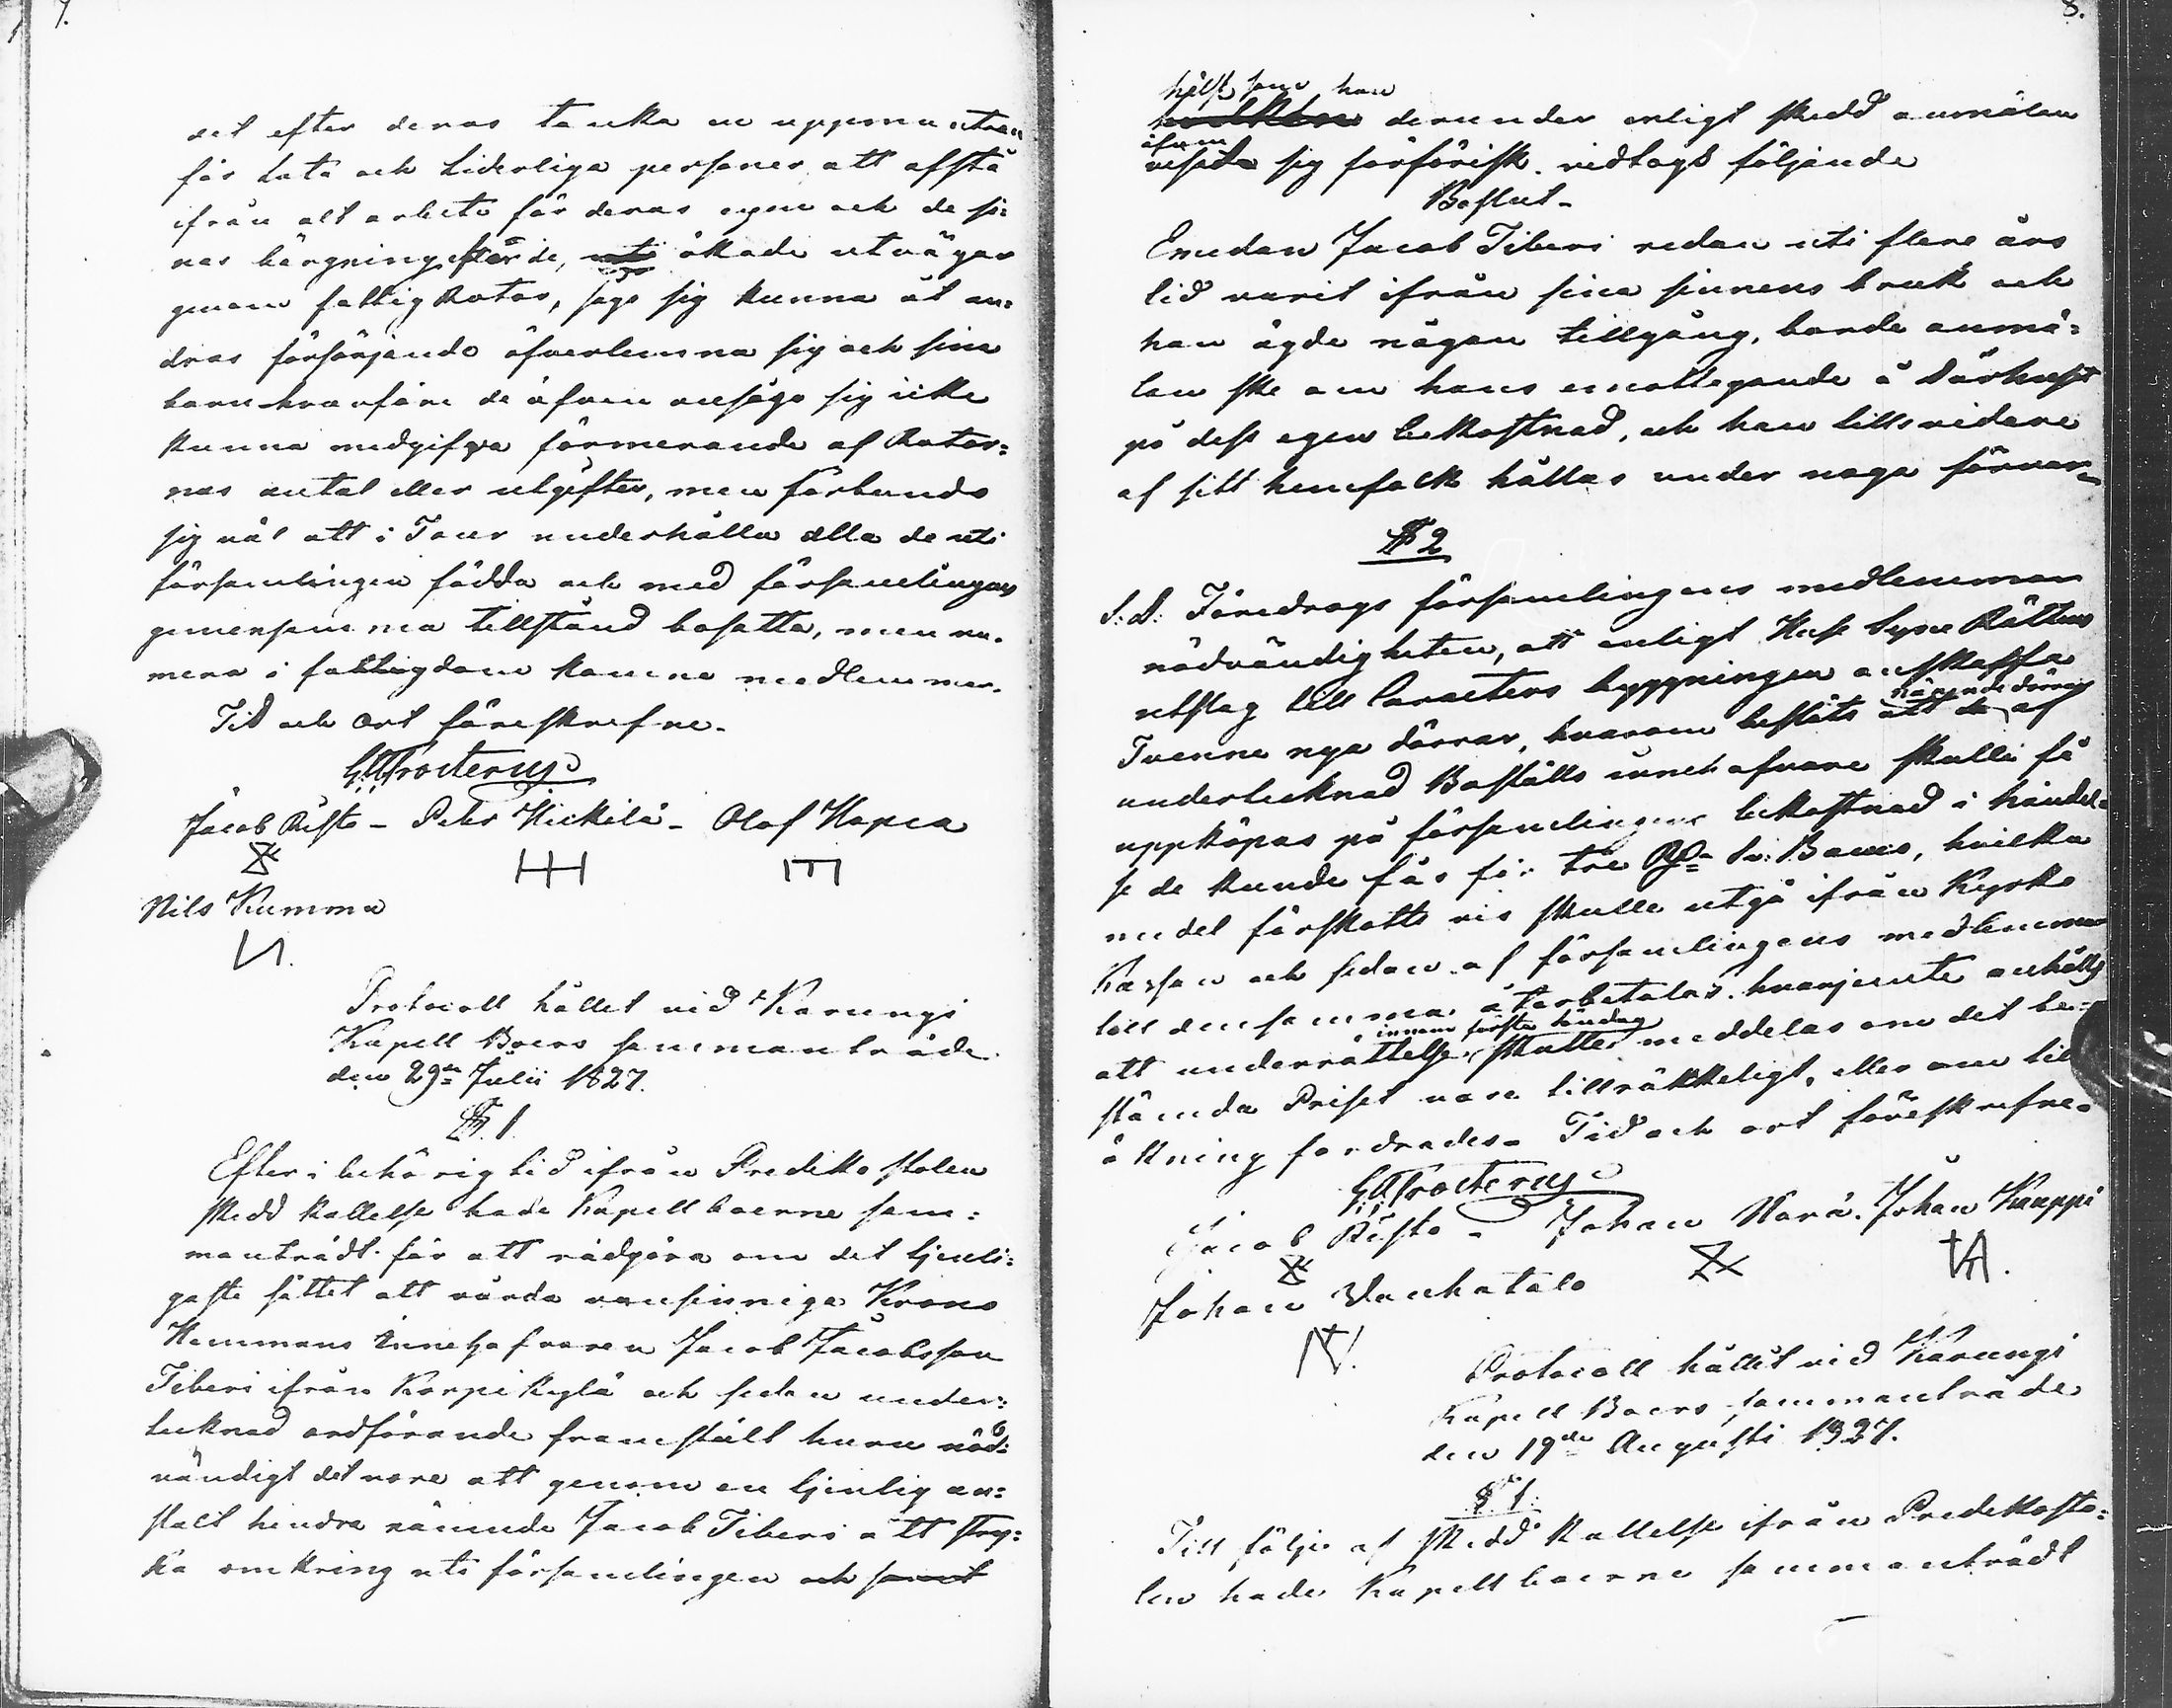 7.
det efter deras tanka en uppmuntran
för lata och liderliga personer att afstå
ifrån alt arbete för deras egen och de si:
nas bärgning efter de, uti ökade utvägar
genom fattig Rotar, sågo sig kunna åt an:
dras försörjande öfverlemna sig och sina
barn hvarföre de äfven ansågo sig icke
kunna medgifva förmerande af Rotar:
nas antal eller utgifter, men förbundo
sig väl att i Tour underhålla alla de uti
församlingen födda och med församlingens
gemensamma tillstånd bosatta, men nu-
mera i fattigdom komne medlemmar.
Tid och ort föreskrefne.
Jacob Risto - Petter Heikilä - Olof Hapea
Nils Kumma
Protocoll hållet vid Karungi
Kapell Boers sammanträde
den 29de Julii 1827.
§. 1.
Efter i behörig tid ifrån Prediko stolen
skedd kallelse hade Kapellboerne sam:
manträdt för att rådgöra om det tjenli:
gaste sättet att vårda vansinniga Krono
Hemmans Innehafvaren Jacob Jacobsson
Tiberi ifrån Korpikylä och sedan under:
tecknad ordförande framstält huru nöd:
vändigt det vore att genom en tjenlig an:
stalt hindra nämnde Jacob Tiberi att stry:
ka omkring uti församlingen och samt
8.
hälst som han
hvilken derunder enligt skedd anmälan
äfven
visade sig förförisk. vidtogs följande
Beslut.
Emedan Jacob Tiberi redan uti flere års
tid varit ifrån sina sinnens bruk och
han ägde någon tillgång, borde anmä:
lan ske om hans emottagande å Dårhuset
på dess egen bekostnad, och han tills vidare
af sitt hemfolk hållas under noga förvar-
§ 2
S. D. Föredrogs församlingens medlemmar
nödvändigheten, att enligt Huse Syne Rättens
utslag till Caracters byggningen anskaffa
nämnde dörrar
Tvenne nya dörrar, hvarom beslöts att de af
undertecknad Boställs innehafvare skulle få
uppköpas på församlingens bekostnad i händel-
se de kunde fås för tre Rd Sv. Banco, hvilka
medel förskotts vis skulle utgå ifrån Kyrko
Kassan och sedan af församlingens medlemmar
till densamma återbetalas. hvarjemte anhölls
innom första söndag
att underrättelse skulle meddelas om det be-
stämda Priset vore tillräkkeligt, eller om till
ökning fordrades. Tid och ort föreskrefne.
Jacob Risto - Johan Norä. Johan Kauppi
Johan Vanhatalo
Protocoll hållit vid Karungi
Kapell Boers sammanträde
den 19de Augusti 1827.
§ 1.
Till följe af skedd kallelse ifrån Predikosto:
len hade Kapellboerne sammanträdt